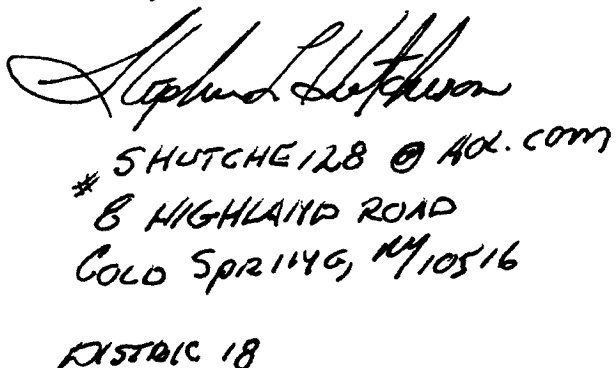 Stephen L Hutcheson
* SHUTCHE128 @ AOL.com
8 HIGHLAND ROAD
COLD SPRING, NY 10516
DISTRIC 18